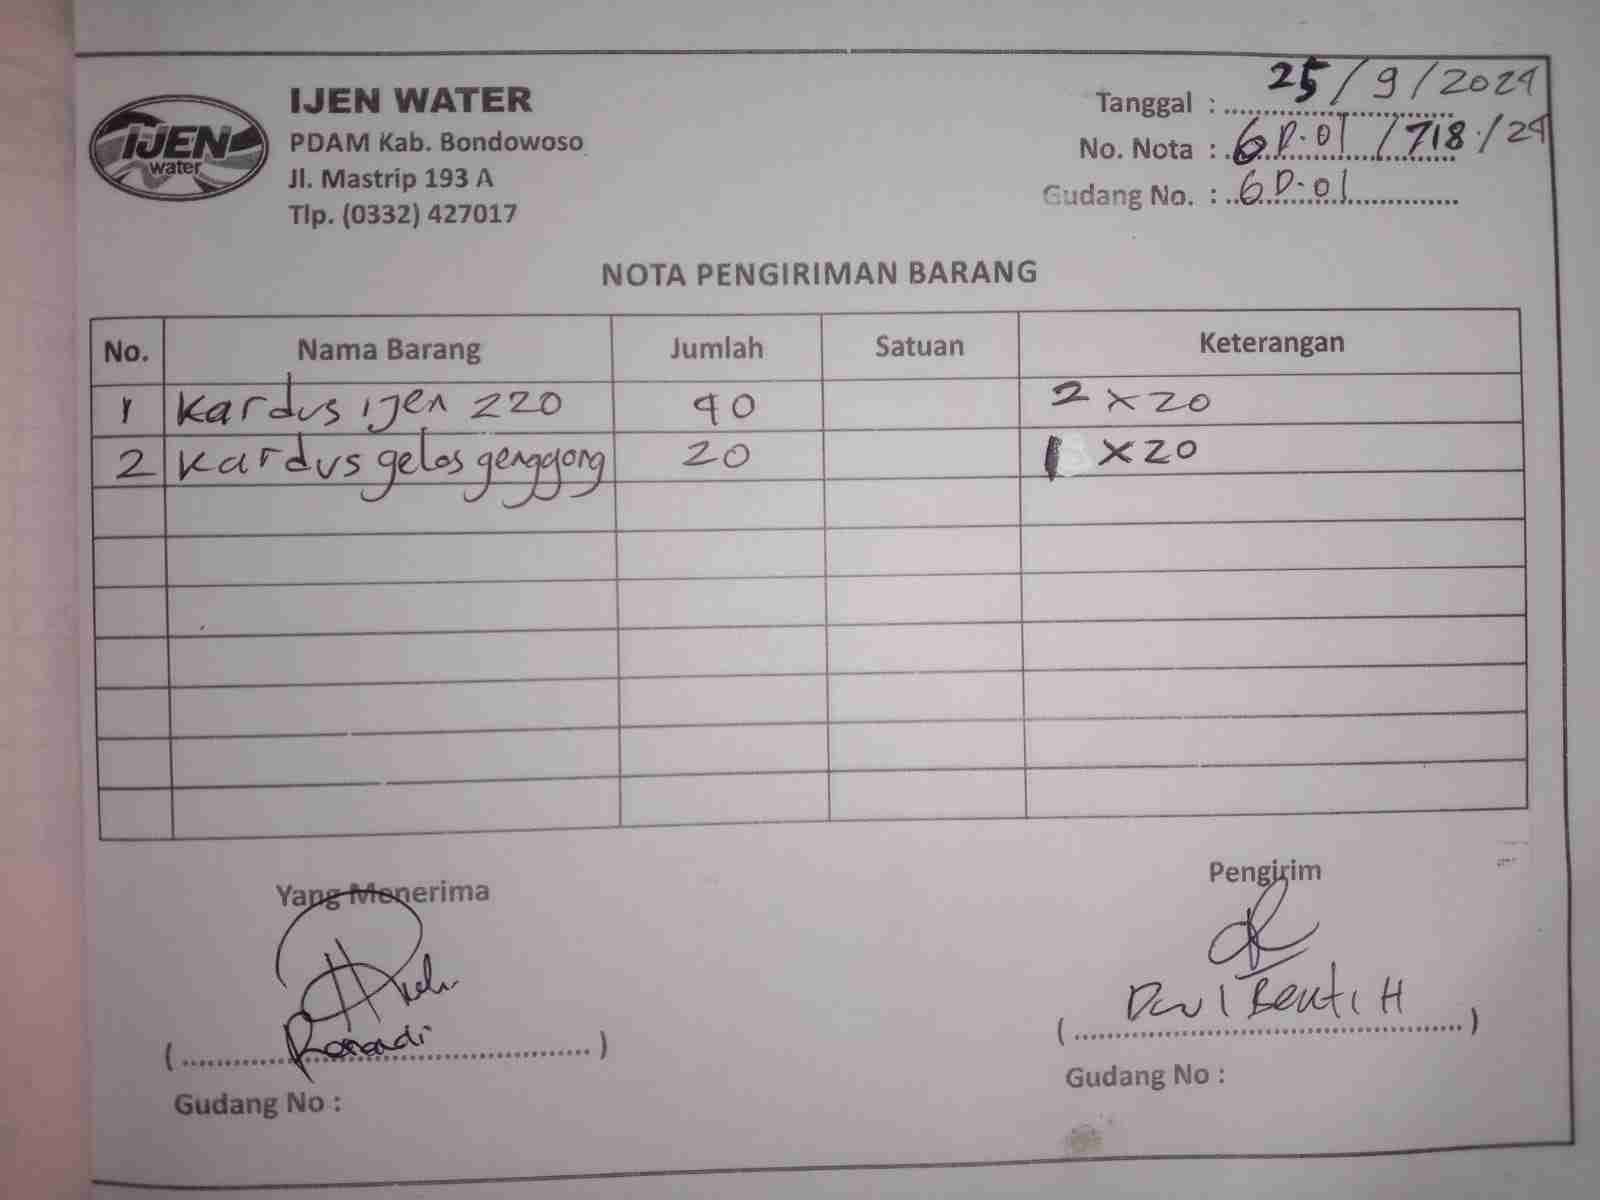 IJEN
water
IJEN WATER
PDAM Kab. Bondowoso
Jl. Mastrip 193 A
Tlp. (0332) 427017
Tanggal : 25/9/2024
No. Nota : GD.01/718/24
Gudang No. : GD.01
NOTA PENGIRIMAN BARANG
No. Nama Barang Jumlah Satuan Keterangan
1 Kardus ijen 220 40 2 x 20
2 Kardus gelas genggong 20 1 x 20
Yang Menerima
Pengirim
( )
( Dewi Benti H )
Gudang No :
Gudang No :